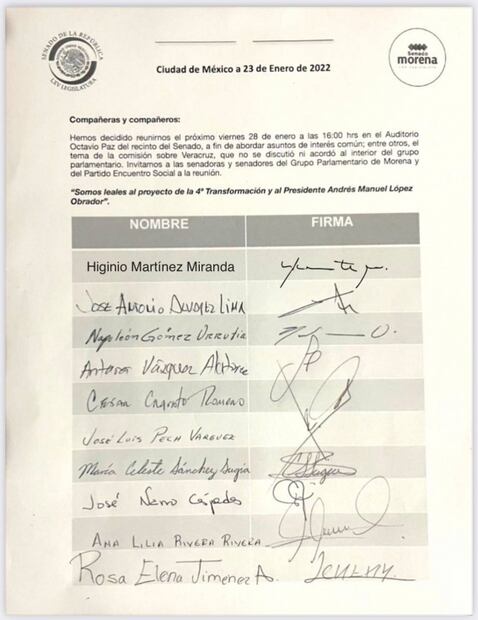 SENADO DE LA REPÚBLICA
LXV LEGISLATURA
Senado
morena
Ciudad de México a 23 de Enero de 2022
Compañeras y compañeros:
Hemos decidido reunirnos el próximo viernes 28 de enero a las 16:00 hrs en el Auditorio
Octavio Paz del recinto del Senado, a fin de abordar asuntos de interés común; entre otros, el
tema de la comisión sobre Veracruz, que no se discutió ni acordó al interior del grupo
parlamentario. Invitamos a las senadoras y senadores del Grupo Parlamentario de Morena y
del Partido Encuentro Social a la reunión.
“Somos leales al proyecto de la 4ª Transformación y al Presidente Andrés Manuel López
Obrador”.
NOMBRE FIRMA
Higinio Martínez Miranda
José Antonio Lima
Napoleón Gómez Urrutia
Vázquez
César Romero
José Luis Pech
María Celeste Sánchez Sugía
José Narro Céspedes
Ana Lilia Rivera Rivera
Rosa Elena Jimenez A.